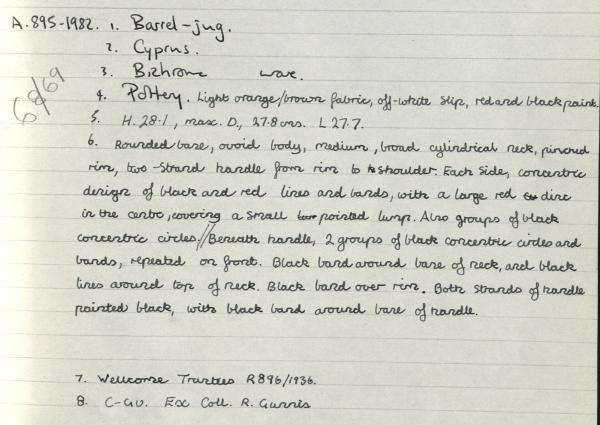 A.895-1982. 1. Barrel-jug.
2. Cyprus.
3. Bichrome ware.
6d/69
4. Pottery. Light orange/brown fabric, off-white slip, red and black paint.
5. H. 28.1, max. D., 27.8 cms. L 27.7.
6. Rounded base, ovoid body, medium, broad cylindrical neck, pinched
rim, two-strand handle from rim to shoulder. Each side, concentric
design of black and red lines and bands, with a large red disc
in the centre, covering a small pointed lump. Also groups of black
concentric circles.//Beneath handle, 2 groups of black concentric circles and
bands, repeated on front. Black band around base of neck, and black
lines around top of neck. Black band over rim. Both strands of handle
painted black, with black band around base of handle.
7. Wellcome Trustees R896/1936.
8. Ex Coll. R. Gunnis